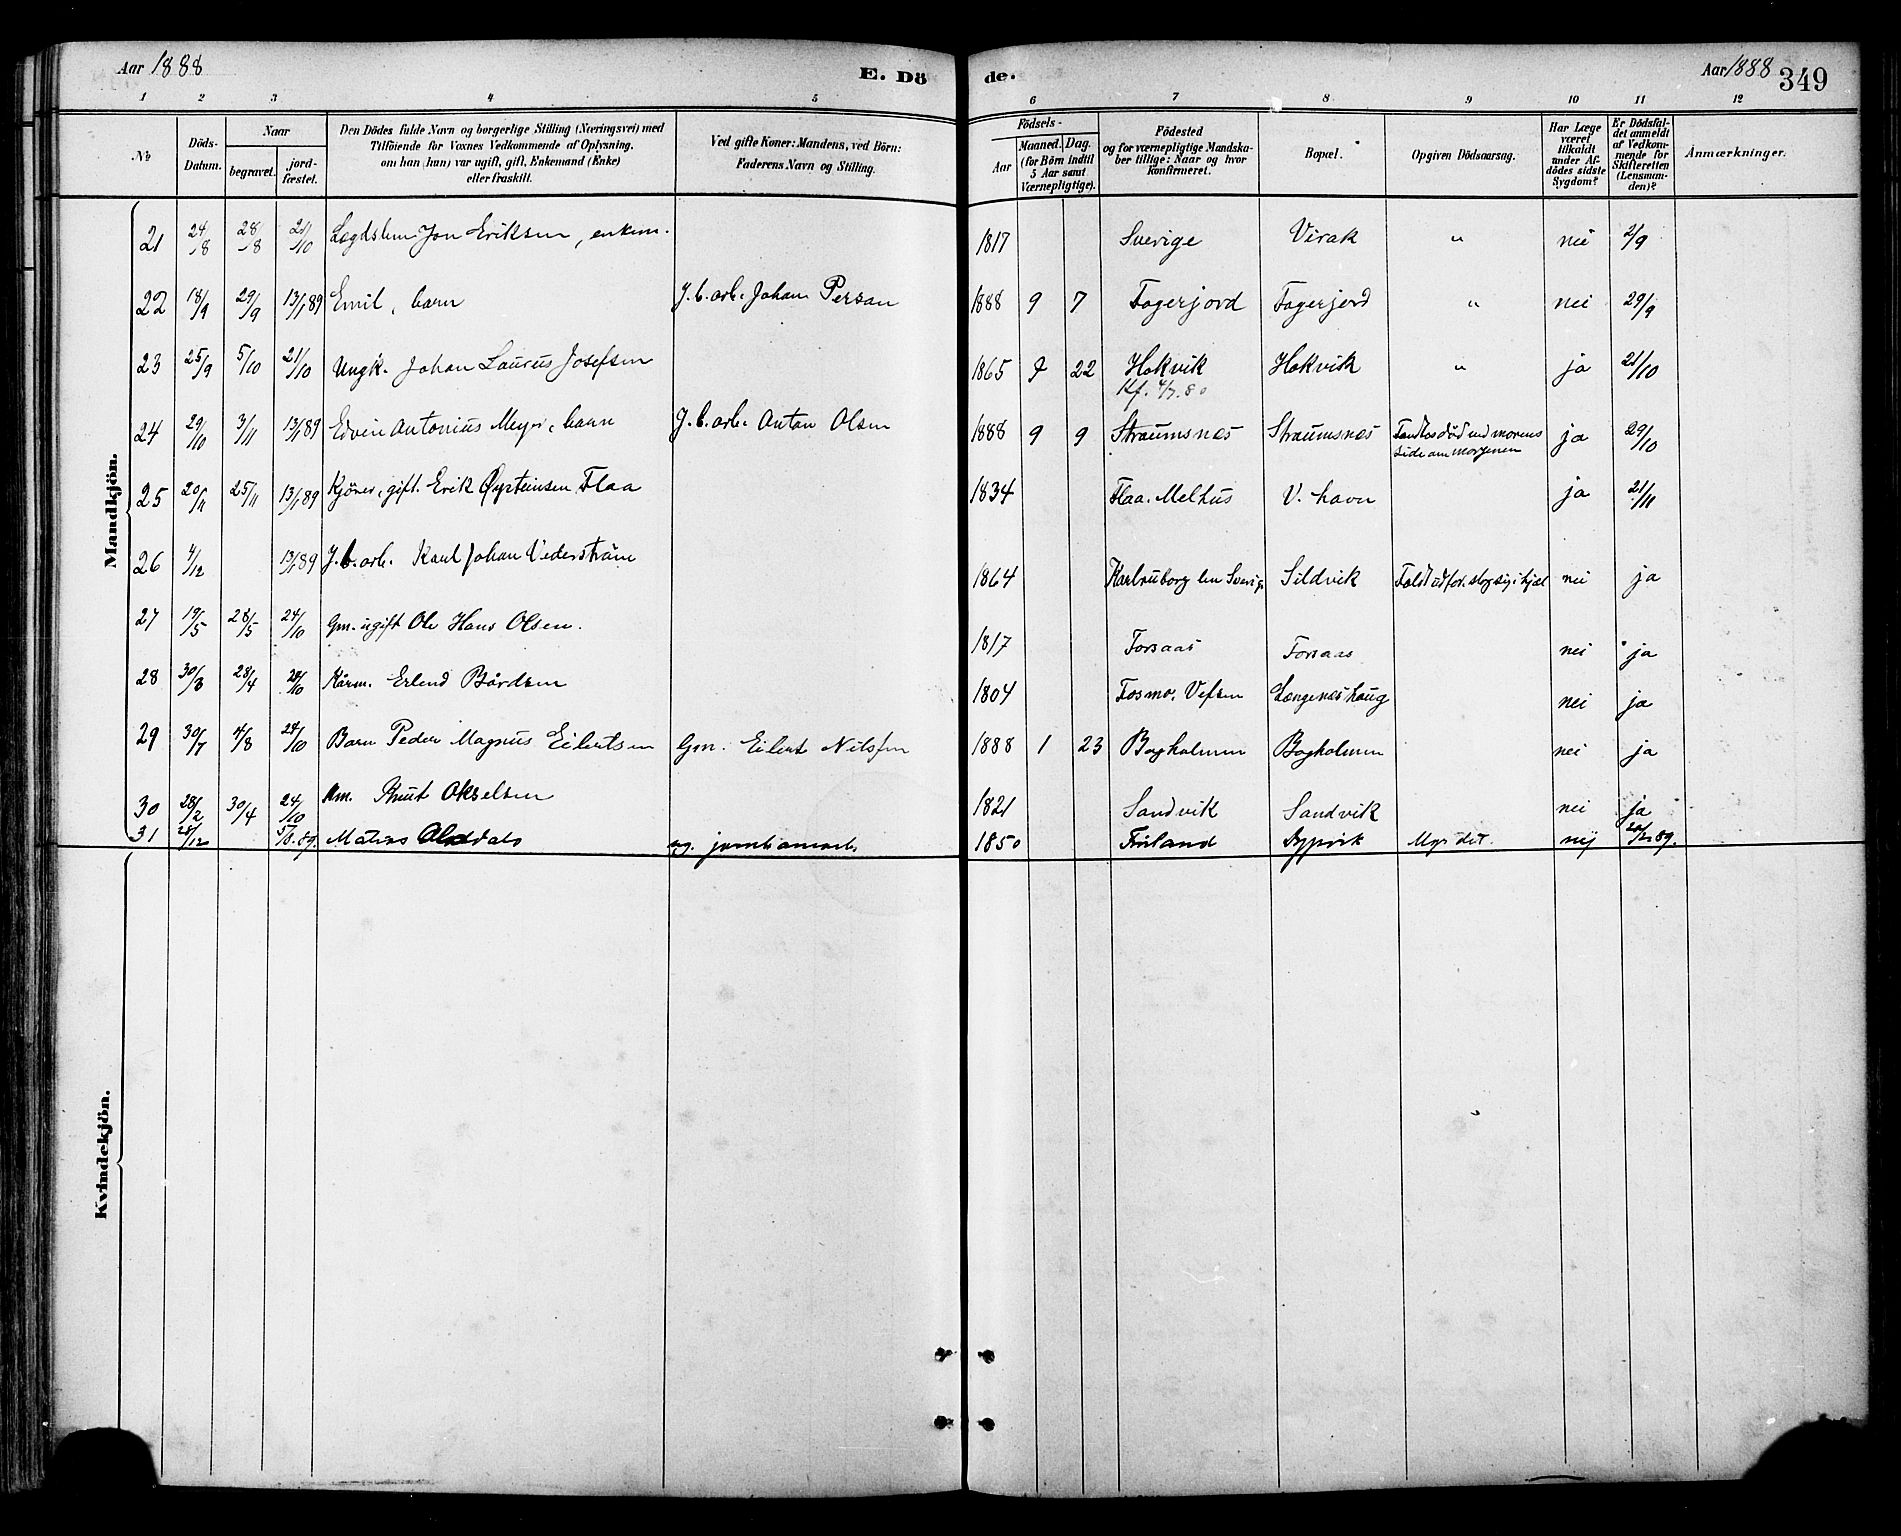 Aar 1888
E. Dö
de.
Aar 1888
349
1 2 3 4 5 6 7 8 9 10 11 12
№
Döds-
Datum.
Naar
begravet.
jord-
fæstet.
Den Dödes fulde Navn og borgerlige Stilling (Næringsvei) med
Tilföiende for Voxnes Vedkommende af Oplysning.
om han (hun) var ugift, gift, Enkemand (Enke)
eller fraskilt.
Ved gifte Koner: Mandens, ved Börn:
Faderens Navn og Stilling.
Födsels-
Aar
Maaned. Dag.
(for Börn indtil
5 Aar samt
Værnepligtige).
Födested
og for værnepligtige Mandska-
ber tillige: Naar og hvor
konfirmeret.
Bopæl.
Opgiven Dödsaarsag.
Har Læge
været
tilkaldt
under Af-
dödes sidste
Sygdom?
Er Dödsfal-
det anmeldt
af Vedkom-
mende for
Skifteretten
(Lensman-
den)?
Anmærkninger.
Mandkjön.
21 24/8 28/8 21/10 Lægdslem Jon Eriksen, enkem. 1817 Sverige Virak " nei 2/9
22 18/9 29/9 13/1 89 Emil, barn J.b.arb. Johan Persan 1888 9 7 Fagerjord Fagerjord " nei 29/9
23 25/9 5/10 21/10 Ungk. Johan Laurus Josefsen 1865 9 22 Hokvik Hokvik " ja 21/10
Kf. 4/7.80
24 29/10 3/11 13/1 89 Edvin Antonius Meyer, barn J.b.arb. Anton Olsen 1888 9 9 Straumsnes Straumsnes Fandtes död ved morens ja 29/10
side om morgenen
25 20/11 25/11 13/1 89 Kjörer, gift. Erik Öysteinsen Flaa 1834 Flaa. Melhus V. havn ja 21/11
26 4/12 13/1 89 J.b.arb. Karl Johan Vederström 1864 Sverig. Sildvik Faldt udfor. slog sig ihjæl nei ja
27 19/5 28/5 24/10 Gm. ugift Ole Hans Olsen. 1817 Forsaas Forsaas nei ja
28 30/3 28/4 24/10 Kårm. Erlend Bårdsen 1804 Fosmo. Vefsen Længeneshaug nei ja
29 30/7 4/8 24/10 Barn Peder Magnus Eilertsen Gm. Eilert Nilsen 1888 1 23 Bogholmen Bogholmen nei ja
30 28/2 30/4 24/10 Km. Knut Akselsen 1821 Sandvik Sandvik nei ja
31 28/12 Matias ug. jernbanearb. 1850 Finland Dypvik Myrdet. nij
Kvindekjön.